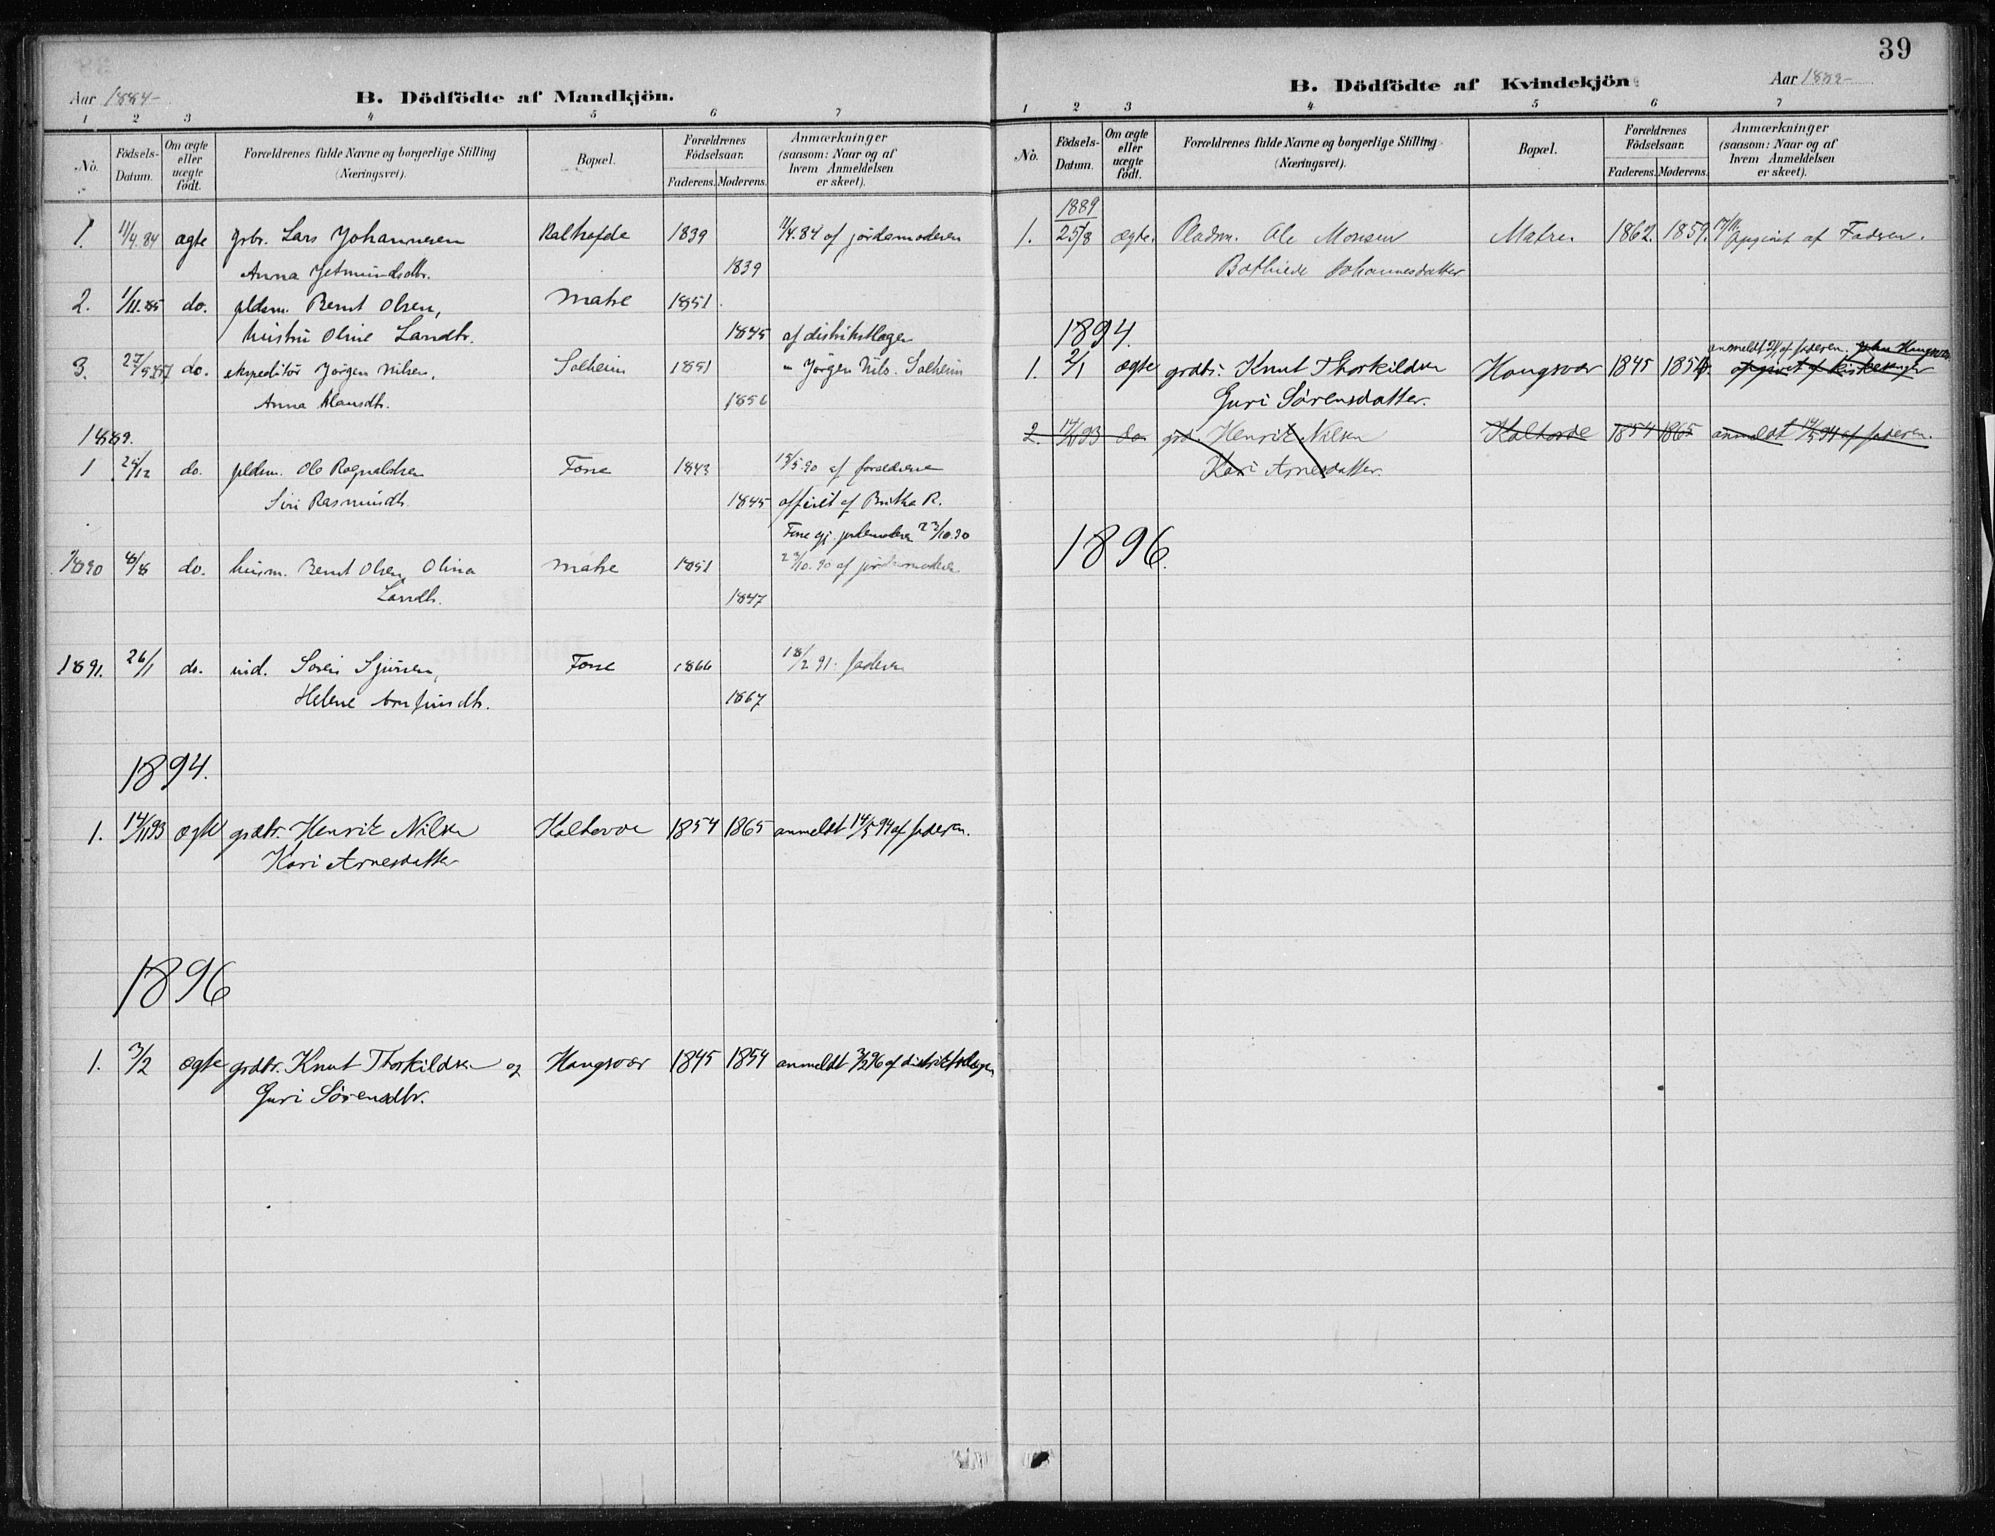 39
Aar 1884-
B. Dödfödte af Mandkjön.
1 2 3 4 5 6 7
No. Födsels-Datum. Om ægte eller uægte födt. Forældrenes fulde Navne og borgerlige Stilling (Næringsvei). Bopæl. Forældrenes Födselsaar. Faderens. Moderens. Anmærkninger (saasom: Naar og af hvem Anmeldelsen er skeet).
1. 11/4.84 ægte grbr. Lars Johannesen 1839 11/4.84 af jordemoderen
Anna 1839
2. 1/11.85 do. pldsm. Bernt Olsen, Matre 1851
hustru Oline Larsdtr. 1845 af distriktslægen
3. 27/5.87 do. ekspeditör Jörgen Nilsen, Solheim 1851 " Jörgen Nils. Solheim
Anna Hansdtr. 1856
1889.
1 25/12 do. pldsm. Ole Ragnaldsen Fone 1843 18/5.90 af forældrene
Siri Rasmusdtr. 1845 opgivet af Britha R.
Fone gj. jordemoder 23/10.90
1890 8/8 do. husm. Bernt Olsen, Olina Matre 1851 23/10.90 af jordemoderen
Larsdtr. 1847
1891. 26/1 do. ind. Soren Sjursen, Fone 1866 18/2 91. faderen
Helene Arnfinsdtr. 1867
1894.
1. 14/11 93 ægte grdbr. Henrik Nilsen Kaltovde 1854 1865 anmeldt 14/5 94 af faderen.
Kari Arnesdatter
1896
1. 3/2 ægte grdbr. Knut Thorkildsen og Haugsvær 1845 1854 anmeldt 3/2 96 af distriktslægen
Guri Sörensdtr.
B. Dödfödte af Kvindekjön.
Aar 1889-
1 2 3 4 5 6 7
No. Födsels-Datum. Om ægte eller uægte födt. Forældrenes fulde Navne og borgerlige Stilling (Næringsvei). Bopæl. Forældrenes Födselsaar. Faderens. Moderens. Anmærkninger (saasom: Naar og af hvem Anmeldelsen er skeet).
1889
1. 25/8 ægte. Pladsm. Ole Monsen Matre 1862. 1859. 17/11 opgivet af Faderen.
Bothilde Johannesdatter
1894.
anmeldt 2/1 af faderen.
1. 2/1 ægte grdbr. Knut Thorkildsen Haugsvær 1845 1854. opgivet af kirkesanger
Guri Sörensdatter.
2. 14/11 93 do grd. Henrik Nilsen Kaltovde 1854 1865 anmeldt 14/5 94 af faderen.
Kari Arnesdatter.
1896.